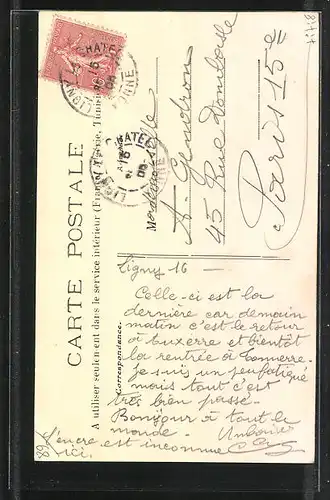 CARTE POSTALE
A utiliser seulement dans le service intérieur (France, Algérie, Tunisie
Correspondance.
LIGNY-LE-CHATEL
YONNE
A. Gendron
45 Rue Dombasle
Paris 15e
Ligny 16 —
Celle-ci est la
dernière car demain
matin c'est le retour
à Auxerre et bientôt
la rentrée à Tonnerre.
Je suis un peu fatigué
mais tout s'est
très bien passé.
Bonjour à tout le
monde.
L'encre est inconnue
ici.